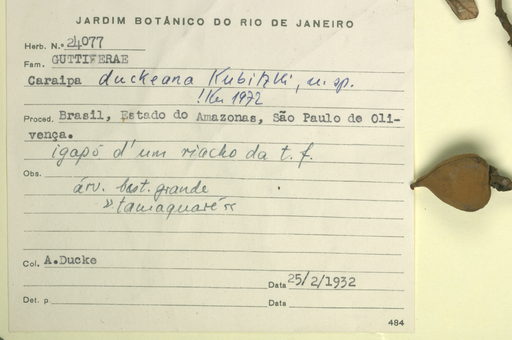 JARDIM BOTÂNICO DO RIO DE JANEIRO
Herb. N.º 24077
Fam. GUTTIFERAE
Caraipa duckeana Kubitzki, n. sp.
! Ku 1972
Proced. Brasil, Estado do Amazonas, São Paulo de Oli-
vença.
igapó d'um riacho da t. f.
Obs.
árv. bast. grande
"tamaquaré"
Col. A.Ducke
Data 25/2/1932
Det. p Data
484